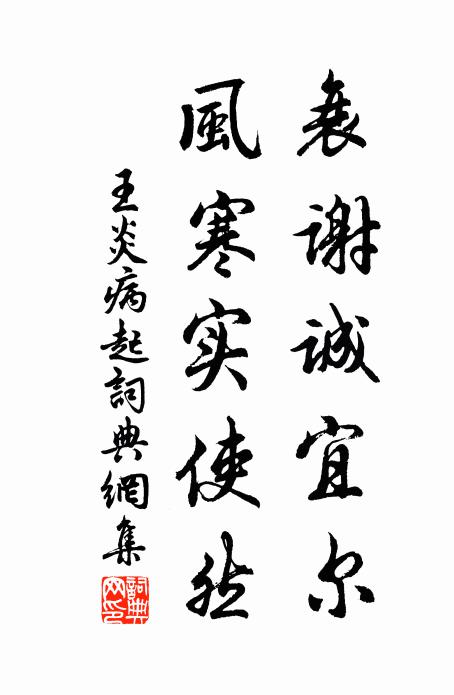 衰谢诚宜尔
風寒实使然
王炎病起詞典網集
詞典网印